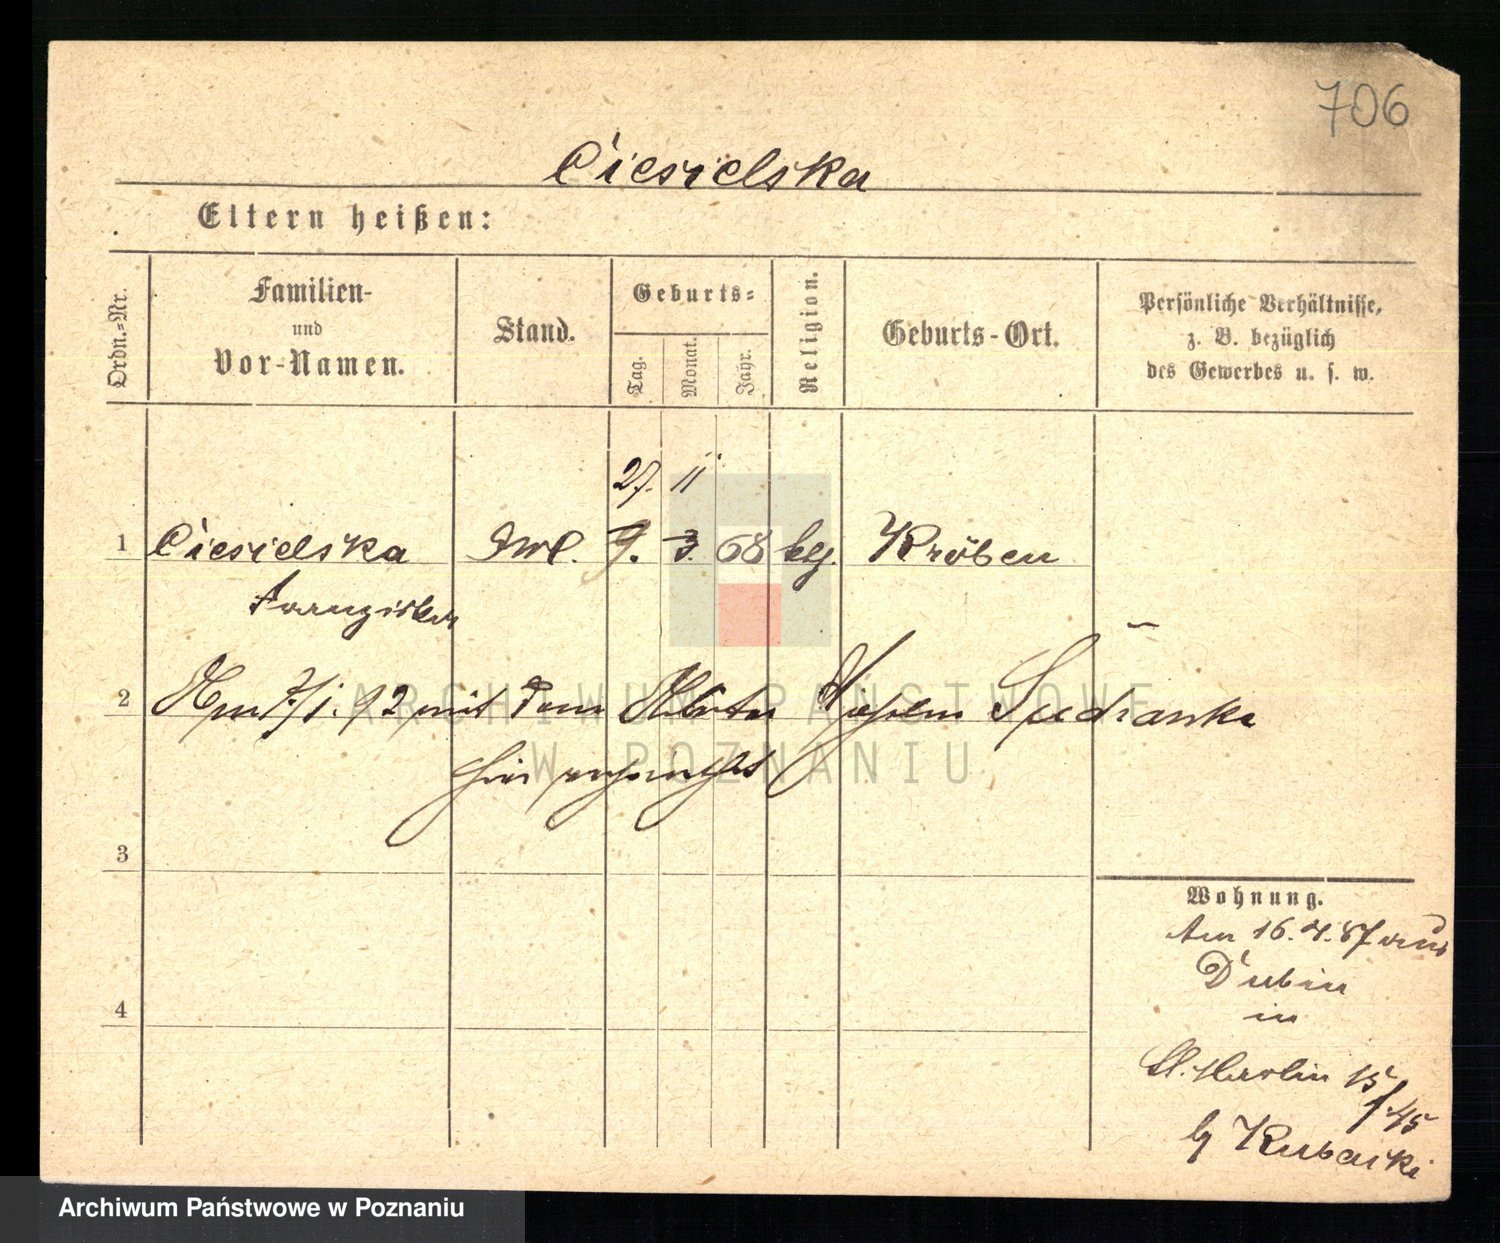 706
Ciesielska
Eltern heißen:
Ordn.=Nr.
Familien-
und
Vor-Namen.
Stand.
Geburts=
Tag.
Monat.
Jahr.
Religion.
Geburts-Ort.
Persönliche Verhältnisse,
z. B. bezüglich
des Gewerbes u. s. w.
27. 11
1 Ciesielska 9. 3. 68 Kröben
Franziska
2 Am 7/1. 92 mit dem
hier
ARCHIWUM PAŃSTWOWE
W POZNANIU
3
Wohnung.
Am 16. 4. 87 aus
Dubin
in
St. Martin 15
/45
4
Archiwum Państwowe w Poznaniu